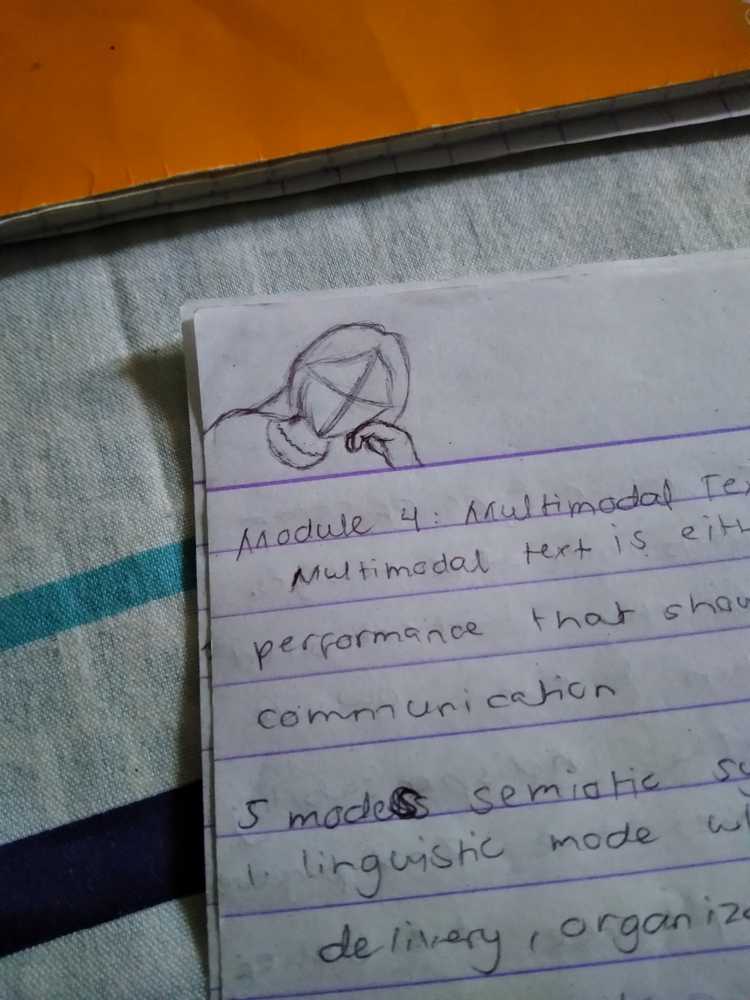 Module 4: Multimodal Tex
Multimodal text is eith
performance that show
communication
5 modes semiotic sy
1. linguistic mode
delivery, organiza